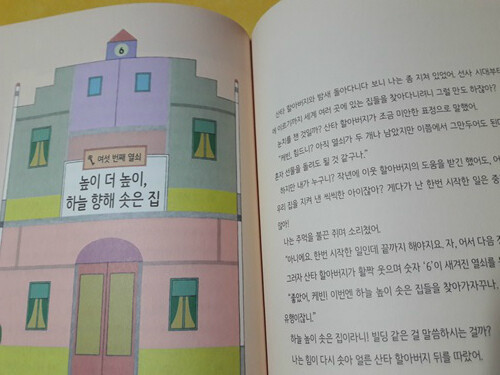 6
여섯 번째 열쇠
높이 더 높이,
하늘 향해 솟은 집
산타 할아버지와 밤새 돌아다니다 보니 나는 좀 지쳐 있었어. 선사 시대부터
에 이르기까지 세계 여러 곳에 있는 집들을 찾아다니려니 그럴 만도 하잖아?
눈치를 챈 것일까? 산타 할아버지가 조금 미안한 표정으로 말했어.
"케빈, 힘드니? 아직 열쇠가 두 개나 남았지만 이쯤에서 그만두어도 된다
혼자 선물을 돌려도 될 것 같구나."
하지만 내가 누구니? 작년에 이웃 할아버지의 도움을 받긴 했어도,
우리 집을 지켜 낸 씩씩한 아이잖아? 게다가 난 한번 시작한 일은
않아!
나는 주먹을 불끈 쥐며 소리쳤어.
"아니에요. 한번 시작한 일인데 끝까지 해야지요. 자, 어서 다음
그러자 산타 할아버지가 활짝 웃으며 숫자 '6'이 새겨진 열쇠를
"좋았어, 케빈! 이번엔 하늘 높이 솟은 집들을 찾아가자꾸나.
유행이잖니."
하늘 높이 솟은 집이라니! 빌딩 같은 걸 말씀하시는 걸까?
나는 힘이 다시 솟아 얼른 산타 할아버지 뒤를 따랐어.